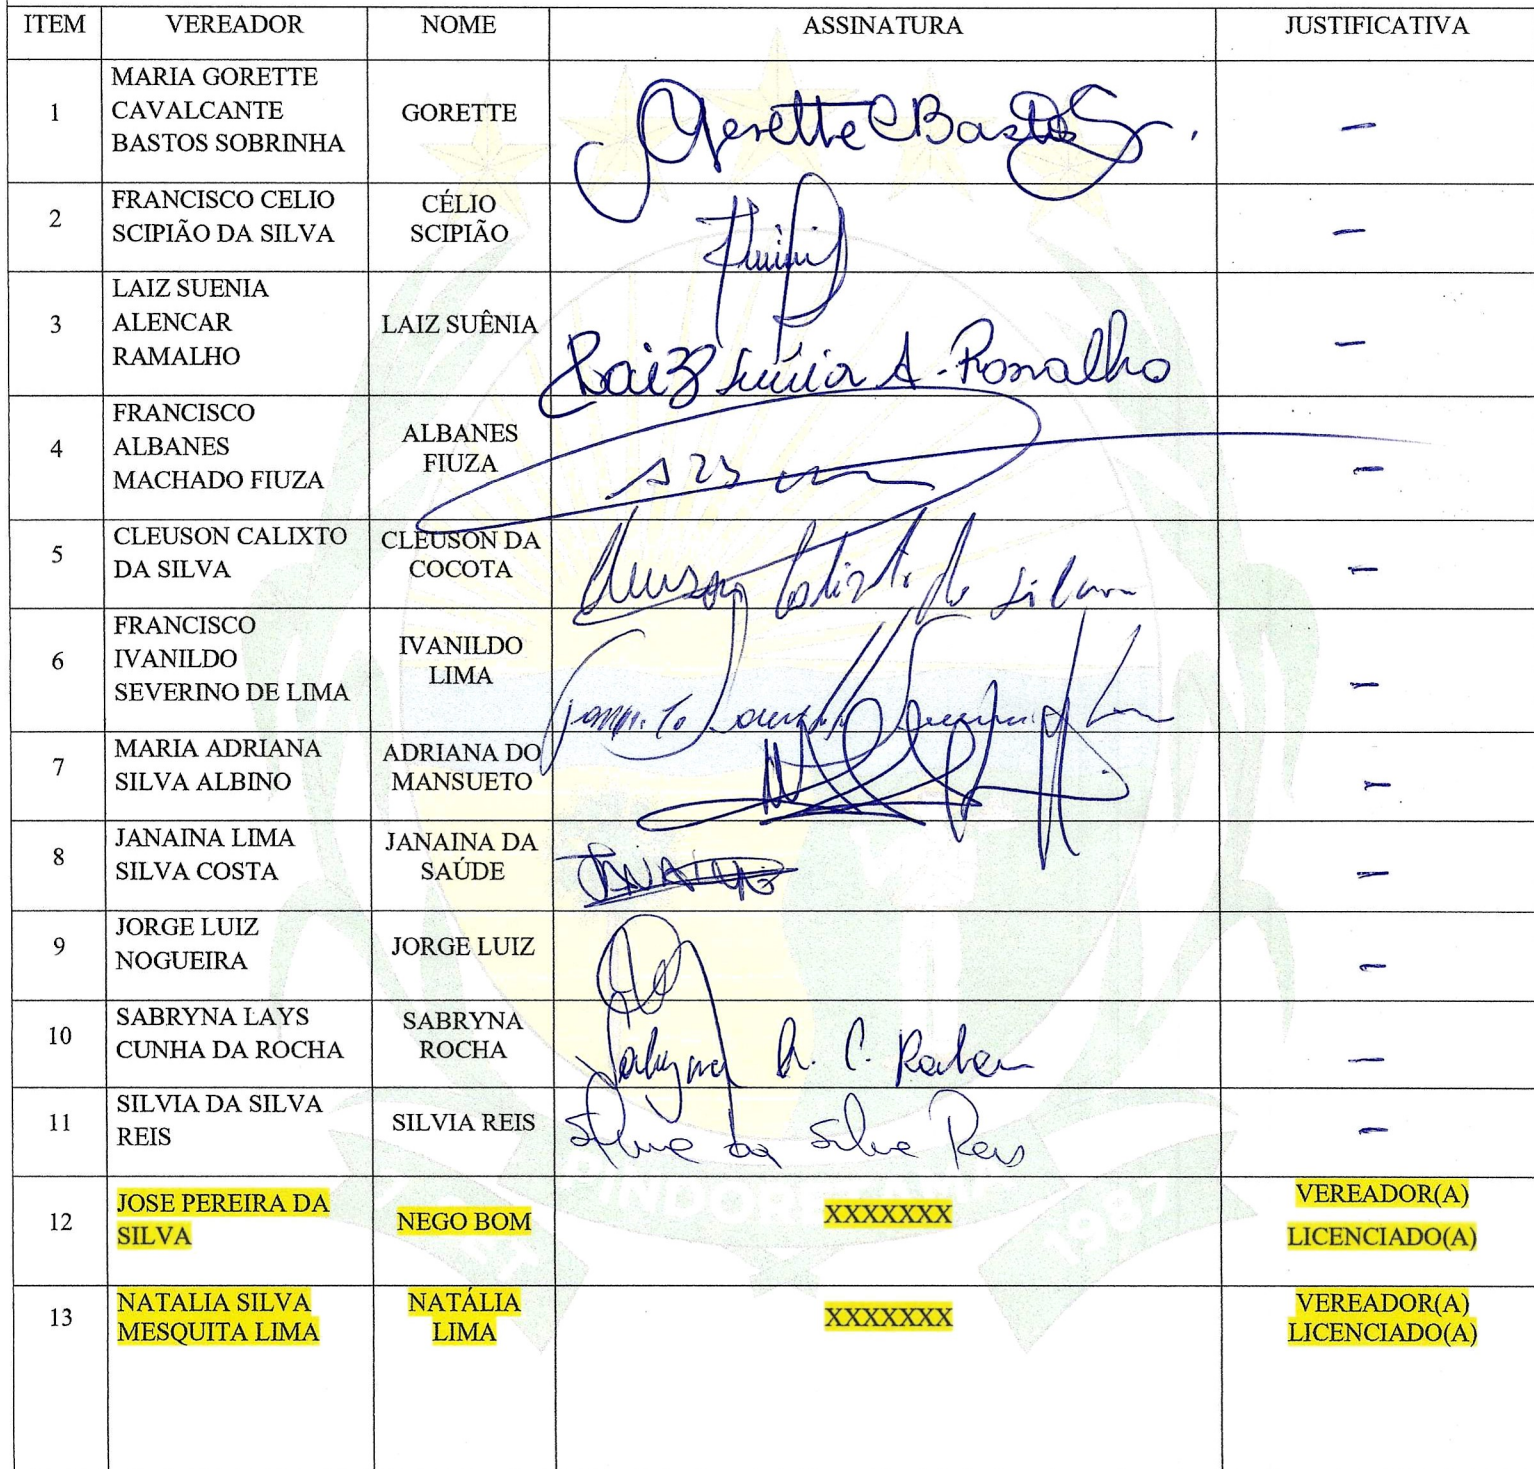 ITEM VEREADOR NOME ASSINATURA JUSTIFICATIVA
1 MARIA GORETTE CAVALCANTE BASTOS SOBRINHA GORETTE Gorette C Bastos S. –
2 FRANCISCO CELIO SCIPIÃO DA SILVA CÉLIO SCIPIÃO –
3 LAIZ SUENIA ALENCAR RAMALHO LAIZ SUÊNIA Laiz Suênia A. Ramalho –
4 FRANCISCO ALBANES MACHADO FIUZA ALBANES FIUZA –
5 CLEUSON CALIXTO DA SILVA CLEUSON DA COCOTA Cleuson Calixto da Silva –
6 FRANCISCO IVANILDO SEVERINO DE LIMA IVANILDO LIMA –
7 MARIA ADRIANA SILVA ALBINO ADRIANA DO MANSUETO –
8 JANAINA LIMA SILVA COSTA JANAINA DA SAÚDE JANAINA –
9 JORGE LUIZ NOGUEIRA JORGE LUIZ –
10 SABRYNA LAYS CUNHA DA ROCHA SABRYNA ROCHA Sabryna L. C. Rocha –
11 SILVIA DA SILVA REIS SILVIA REIS Silvia da Silva Reis –
12 JOSE PEREIRA DA SILVA NEGO BOM XXXXXXX VEREADOR(A) LICENCIADO(A)
13 NATALIA SILVA MESQUITA LIMA NATÁLIA LIMA XXXXXXX VEREADOR(A) LICENCIADO(A)
PINDORETAMA
1987